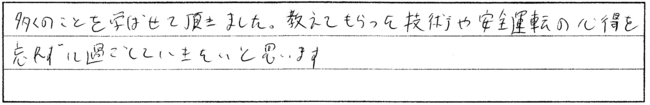 多くのことを学ばせて頂きました。教えてもらった技術や安全運転の心得を
忘れずに過ごしていきたいと思います